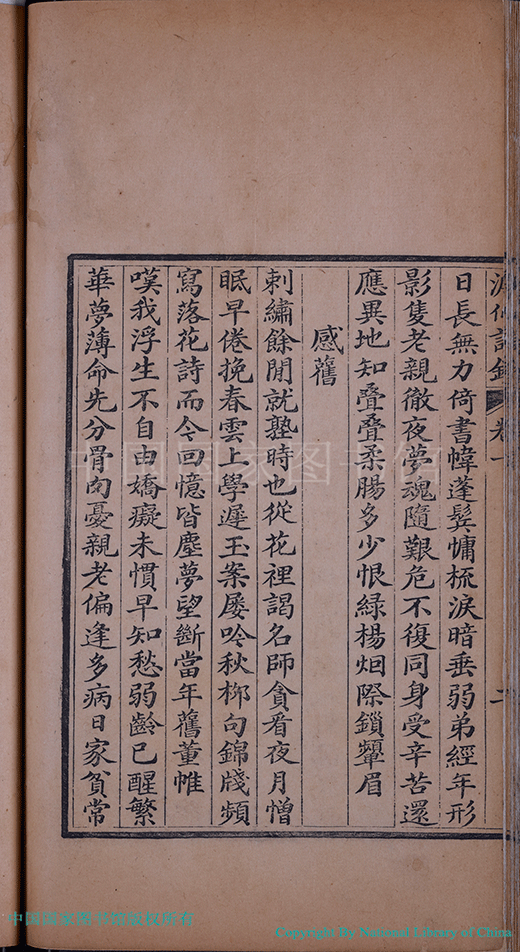 卷一
二
日長無力倚書幃蓬鬂慵梳淚暗垂弱弟經年形
影隻老親徹夜夢魂隨艱危不復同身受辛苦還
應異地知疊疊柔腸多少恨綠楊烟際鎖顰眉
感舊
刺繡餘閒就塾時也從花裡謁名師貪看夜月憎
眠早倦挽春雲上學遲玉案屡吟秋栁句錦牋頻
寫落花詩而今回憶皆塵夢望斷當年舊董帷
嘆我浮生不自由嬌癡未慣早知愁弱齡已醒繁
華夢薄命先分骨肉憂親老偏逢多病日家貧常
中国国家图书馆
中国国家图书馆版权所有
Copyright By National Library of China